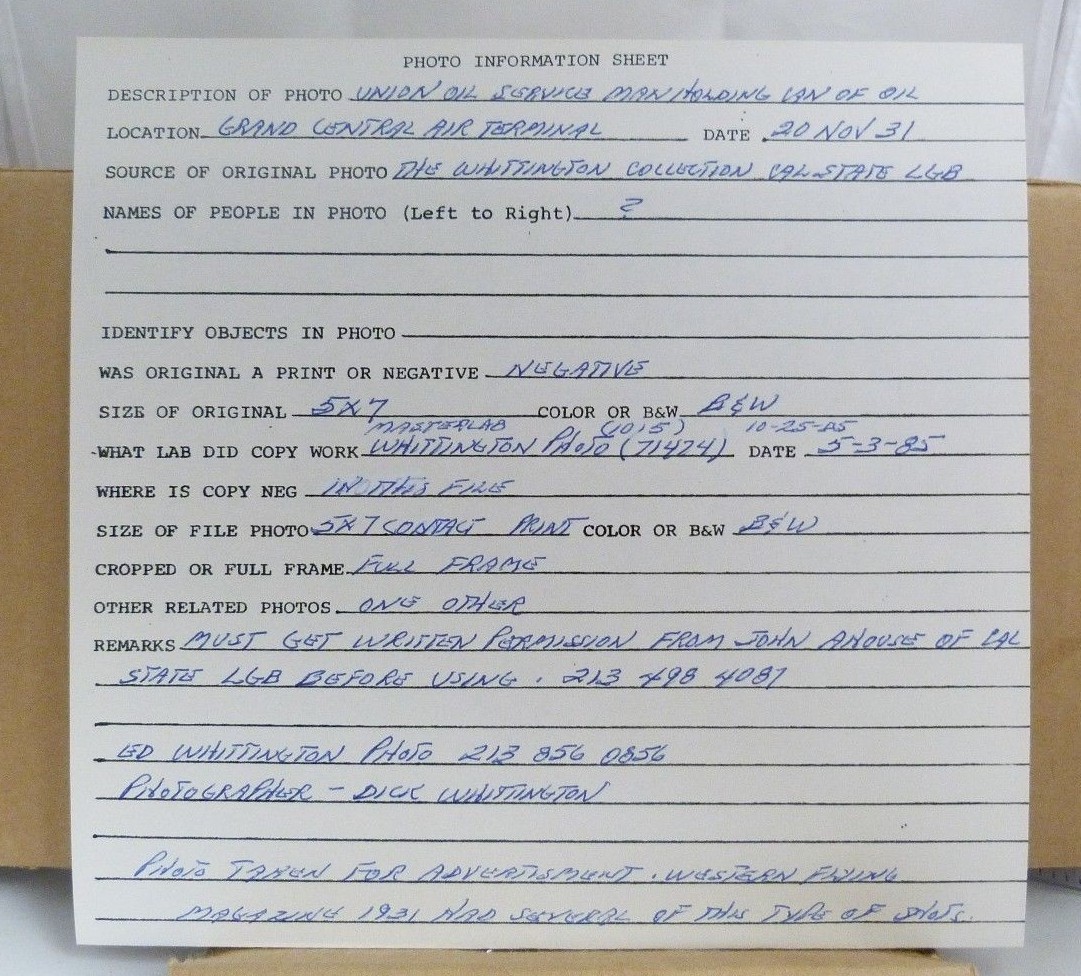 PHOTO INFORMATION SHEET
DESCRIPTION OF PHOTO UNION OIL SERVICE MAN HOLDING CAN OF OIL
LOCATION GRAND CENTRAL AIR TERMINAL DATE 20 NOV 31
SOURCE OF ORIGINAL PHOTO THE WHITTINGTON COLLECTION CAL STATE LGB
NAMES OF PEOPLE IN PHOTO (Left to Right) ?
IDENTIFY OBJECTS IN PHOTO
WAS ORIGINAL A PRINT OR NEGATIVE NEGATIVE
SIZE OF ORIGINAL 5X7 COLOR OR B&W B&W
MASTERLAB (1015) 10-25-85
WHAT LAB DID COPY WORK WHITTINGTON PHOTO (71424) DATE 5-3-85
WHERE IS COPY NEG IN THIS FILE
SIZE OF FILE PHOTO 5X7 CONTACT PRINT COLOR OR B&W B&W
CROPPED OR FULL FRAME FULL FRAME
OTHER RELATED PHOTOS ONE OTHER
REMARKS MUST GET WRITTEN PERMISSION FROM JOHN AHOUSE OF CAL
STATE LGB BEFORE USING. 213 498 4087
ED WHITTINGTON PHOTO 213 856 0856
PHOTOGRAPHER - DICK WHITTINGTON
PHOTO TAKEN FOR ADVERTISMENT. WESTERN FLYING
MAGAZINE 1931 HAD SEVERAL OF THIS TYPE OF SHOTS.